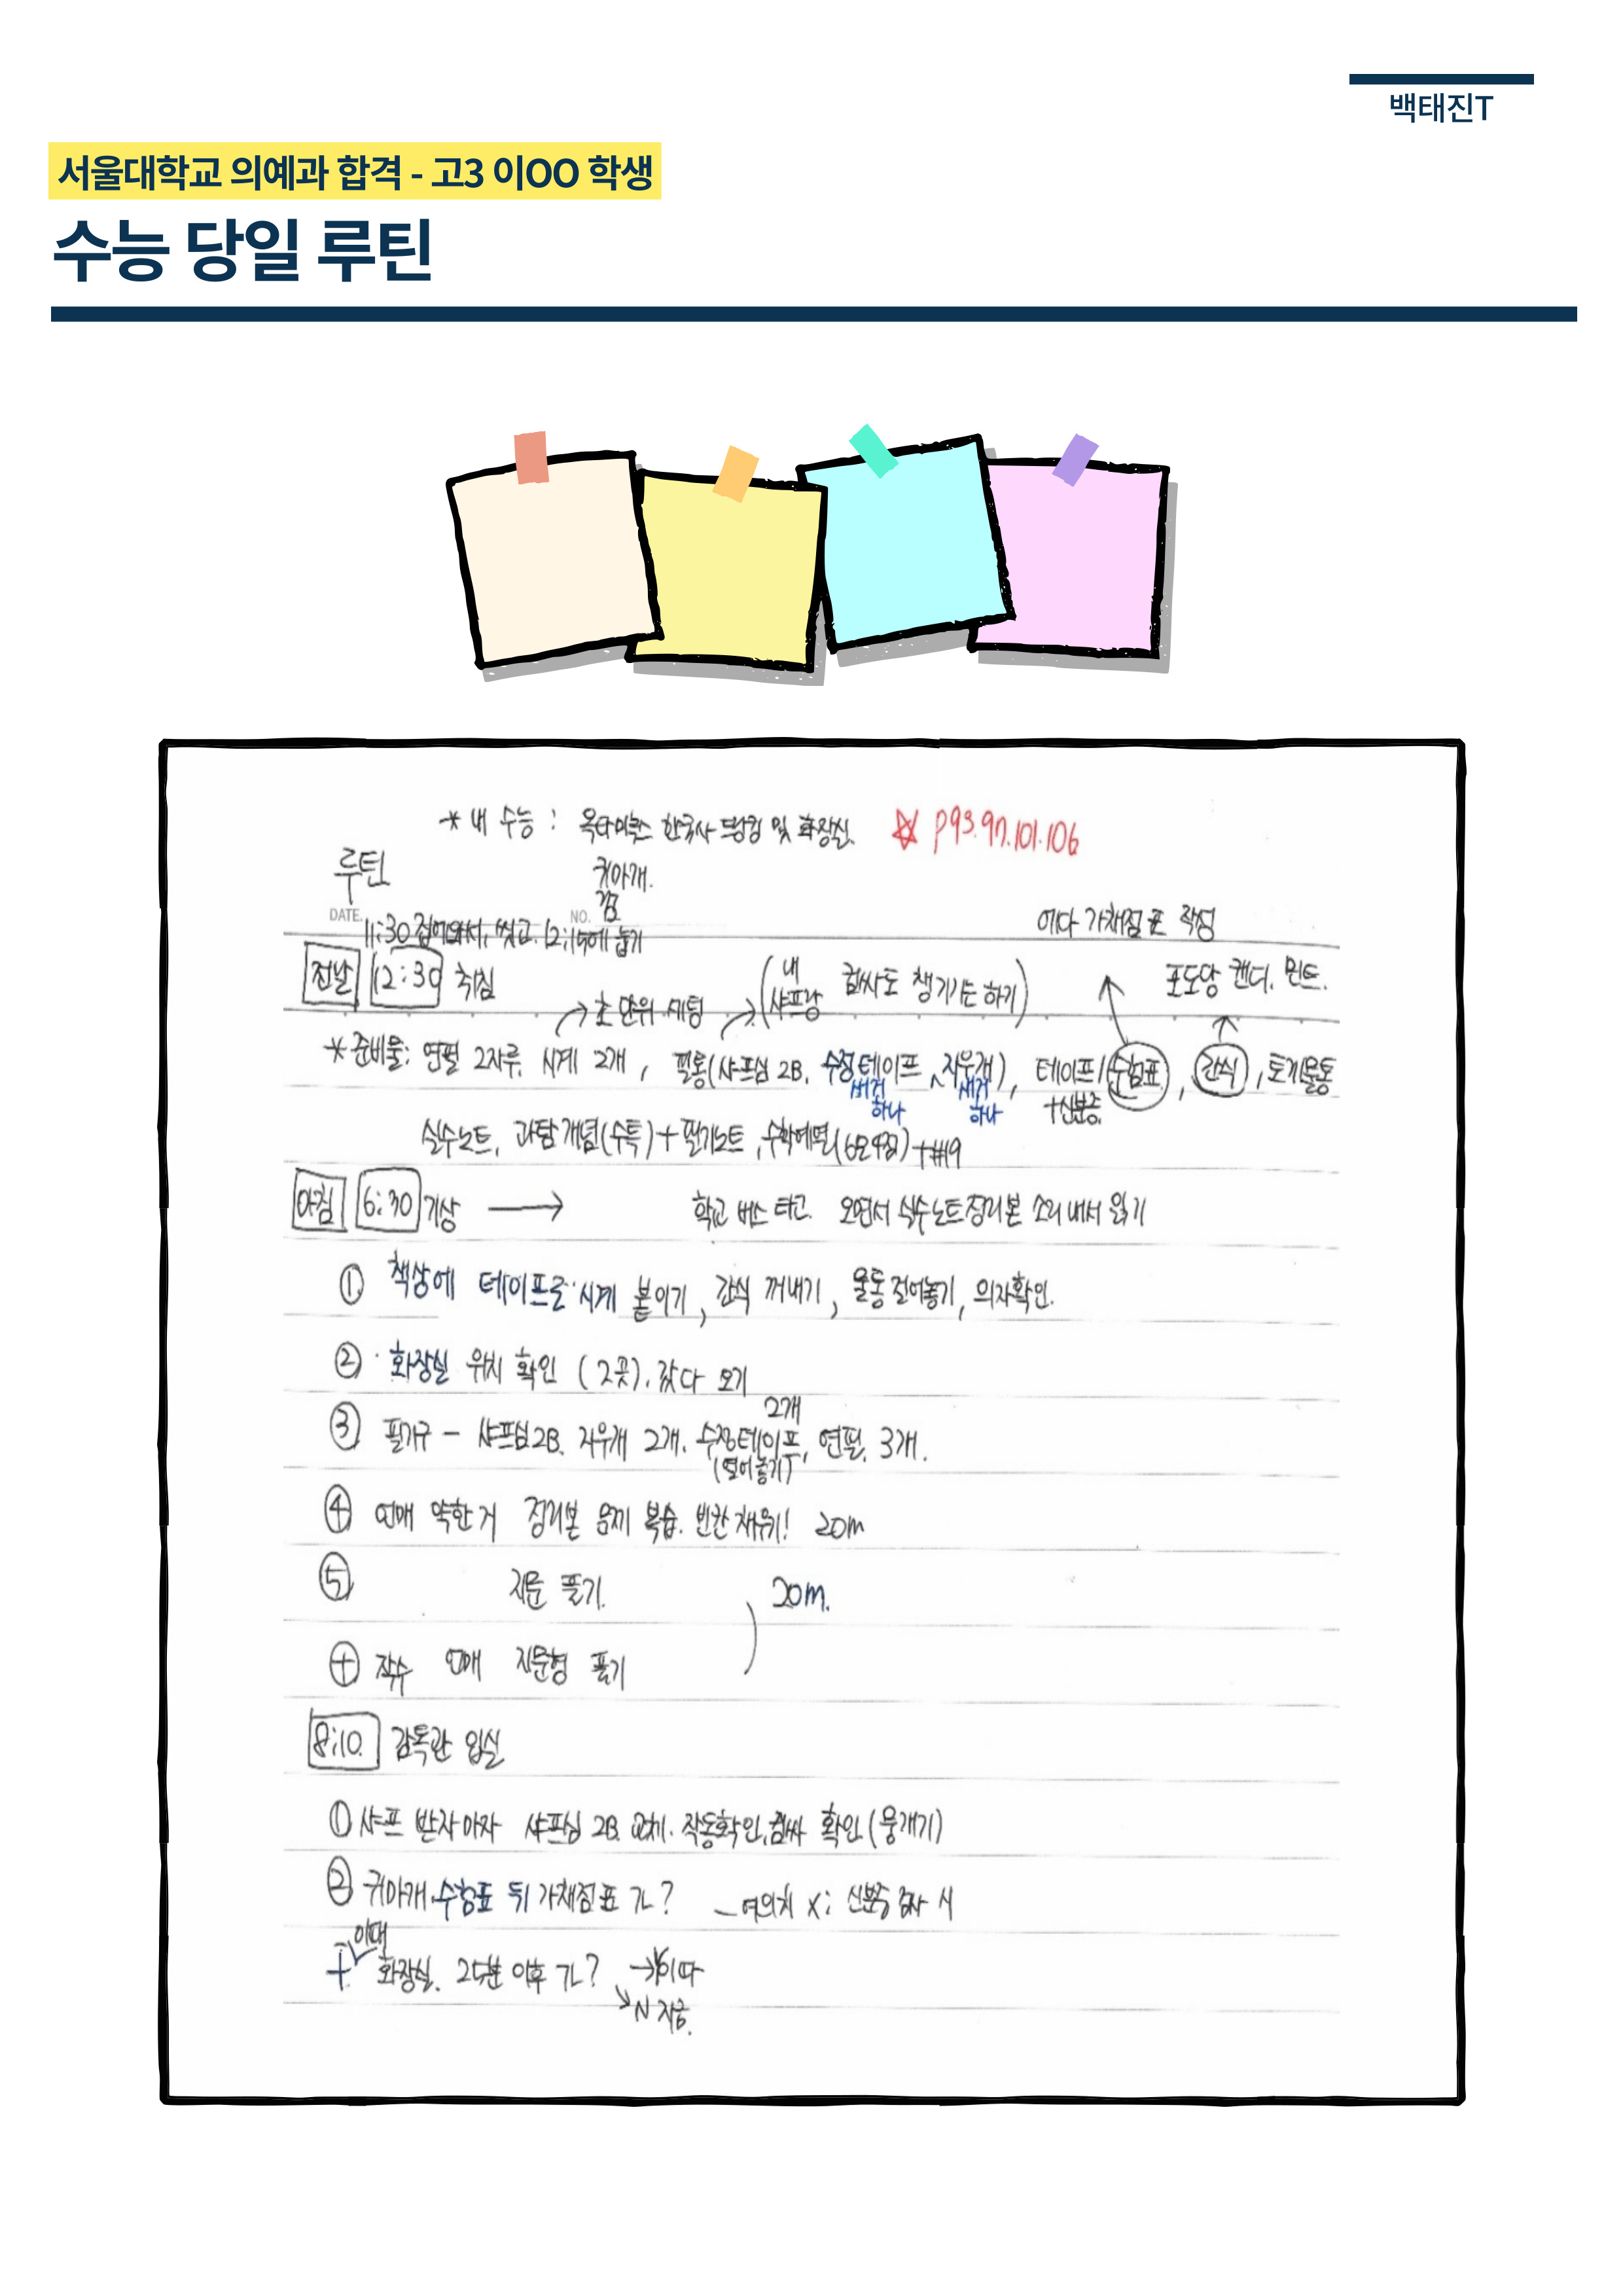 백태진T
서울대학교 의예과 합격 - 고3 이OO 학생
수능 당일 루틴
* 내 수능 : 한국사 및 화장실. ☆ p93.97.101.106
루틴 귀마개.
DATE. NO.
11:30 집에와서, 씻고. 12:15에 눕기 에다 가채점표 작성
전날 12:30 취침 → 초 단위 세팅 → (내 샤프랑 컴싸도 챙기기는 하기) 포도당 캔디. 민트.
* 준비물: 연필 2자루, 시계 2개, 필통(샤프심 2B. 수정테이프, 지우개), 테이프/수험표, 간식, 토끼물통
새거 하나 새거 하나 +신분증
실수노트, 과탐개념(수특)+필기노트, 수학예열 +#19
아침 6:30 기상 → 학교 버스 타고. 오면서 실수노트정리본 소리내서 읽기
① 책상에 테이프로 시계 붙이기, 간식 꺼내기, 물통 걸어놓기, 의자확인.
② 화장실 위치 확인 (2곳). 갔다 오기
2개
③ 필기구 - 샤프심2B. 지우개 2개. 수정테이프, 연필. 3개.
(열어놓기)
④ 언매 약한거 정리본 문제 복습. 빈칸 채우기! 20m
⑤ 지문 풀기. 20m.
⊕ 작수 언매 지문형 풀기
8:10. 감독관 입실
① 샤프 받자마자 샤프심 2B 교체. 작동확인, 컴싸 확인 (뭉개기)
② 귀마개. 수험표 뒤 가채점표 가능? - 여의치 X; 신분증 검사 시
이때
+ 화장실. 25분 이후 가능? → Y 이따
↘ N 지금.